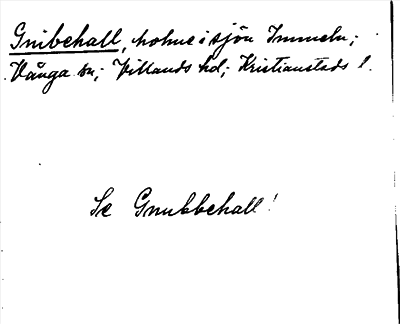 Gnibehall, holme i sjön Immeln;
Vånga sn; Villands hd; Kristianstads l.
Se Gnubbehall!